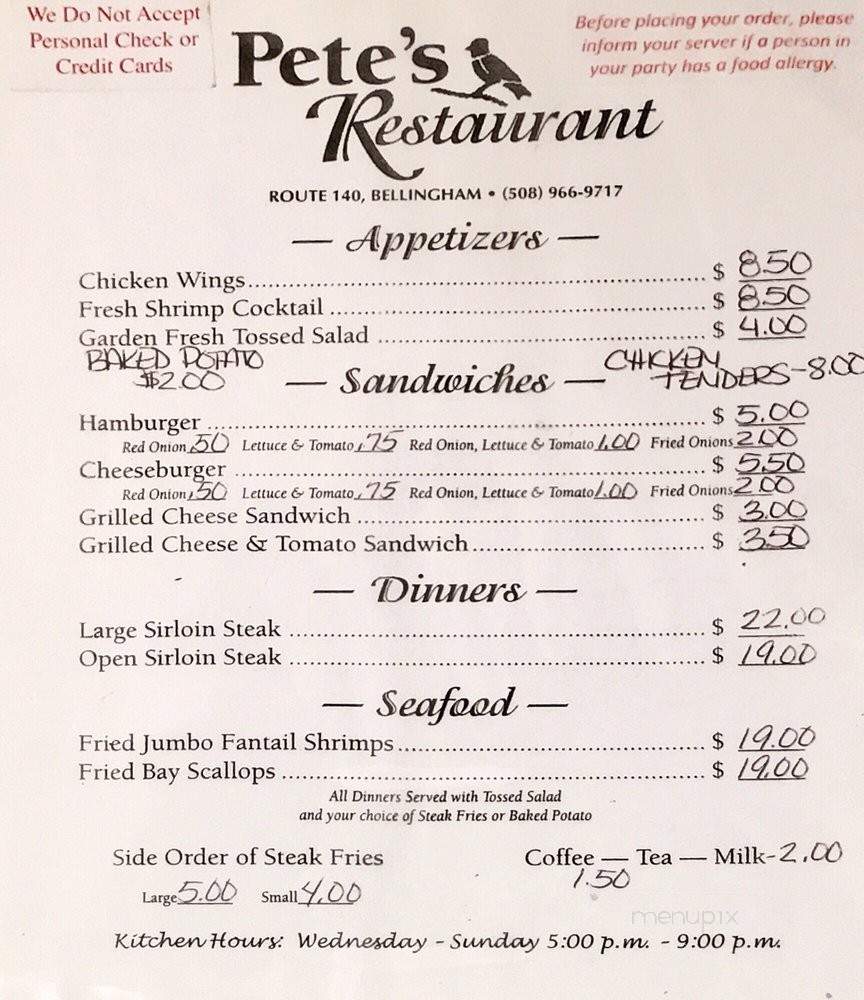 We Do Not Accept
Personal Check or
Credit Cards
Before placing your order, please
inform your server if a person in
your party has a food allergy.
Pete's
Restaurant
ROUTE 140, BELLINGHAM • (508) 966-9717
— Appetizers —
Chicken Wings.......... $ 8.50
Fresh Shrimp Cocktail .......... $ 8.50
Garden Fresh Tossed Salad .......... $ 4.00
BAKED POTATO
$2.00
CHICKEN
TENDERS-8.00
— Sandwiches —
Hamburger .......... $ 5.00
Red Onion .50 Lettuce & Tomato .75 Red Onion, Lettuce & Tomato 1.00 Fried Onions 2.00
Cheeseburger .......... $ 5.50
Red Onion .50 Lettuce & Tomato .75 Red Onion, Lettuce & Tomato 1.00 Fried Onions 2.00
Grilled Cheese Sandwich .......... $ 3.00
Grilled Cheese & Tomato Sandwich .......... $ 3.50
— Dinners —
Large Sirloin Steak .......... $ 22.00
Open Sirloin Steak .......... $ 19.00
— Seafood —
Fried Jumbo Fantail Shrimps .......... $ 19.00
Fried Bay Scallops .......... $ 19.00
All Dinners Served with Tossed Salad
and your choice of Steak Fries or Baked Potato
Side Order of Steak Fries
Large 5.00 Small 4.00
Coffee — Tea — Milk-2.00
1.50
menupix
Kitchen Hours: Wednesday - Sunday 5:00 p.m. - 9:00 p.m.